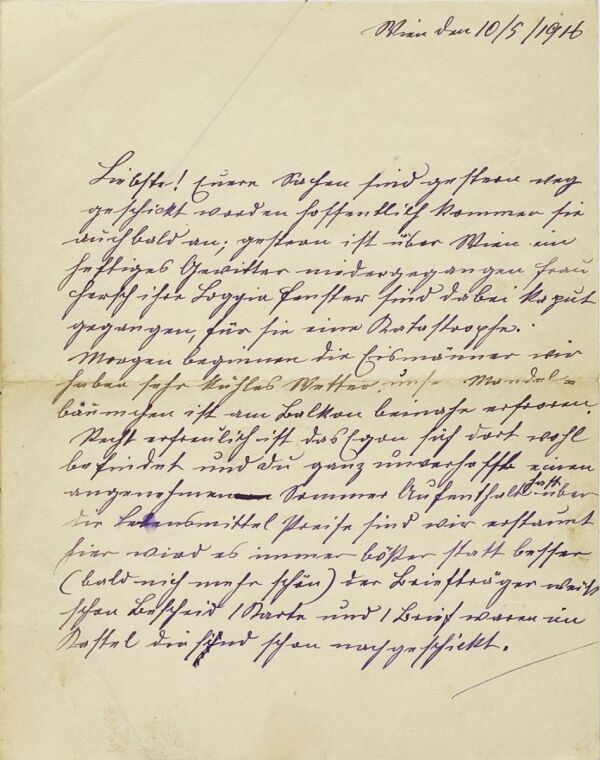 Wien den 10/5/1916
Liebste! Euere Sachen sind gestern weg
geschickt worden hoffentlich kommen sie
auch bald an; gestern ist über Wien ein
heftiges Gewitter niedergegangen, Frau
Hersch ihre Loggia Fenster sind dabei kaput
gegangen, für sie eine Katastrophe.
Morgen beginnen die Eismänner wir
haben sehr kühles Wetter unser Mandel=
bäumchen ist am Balkon beinahe erfroren.
Recht erfreulich ist das Egon sich dort wohl
befindet und du ganz unverhofft einen
angenehmen Sommer Aufenthalt hast über
die Lebensmittel Preise sind wir erstaunt
hier wird es immer bößer statt besser
(bald nich mehr schön) der Briefträger weiß
schon Bescheid 1 Karte und 1 Brief waren im
Kastel die sind schon nachgeschickt.